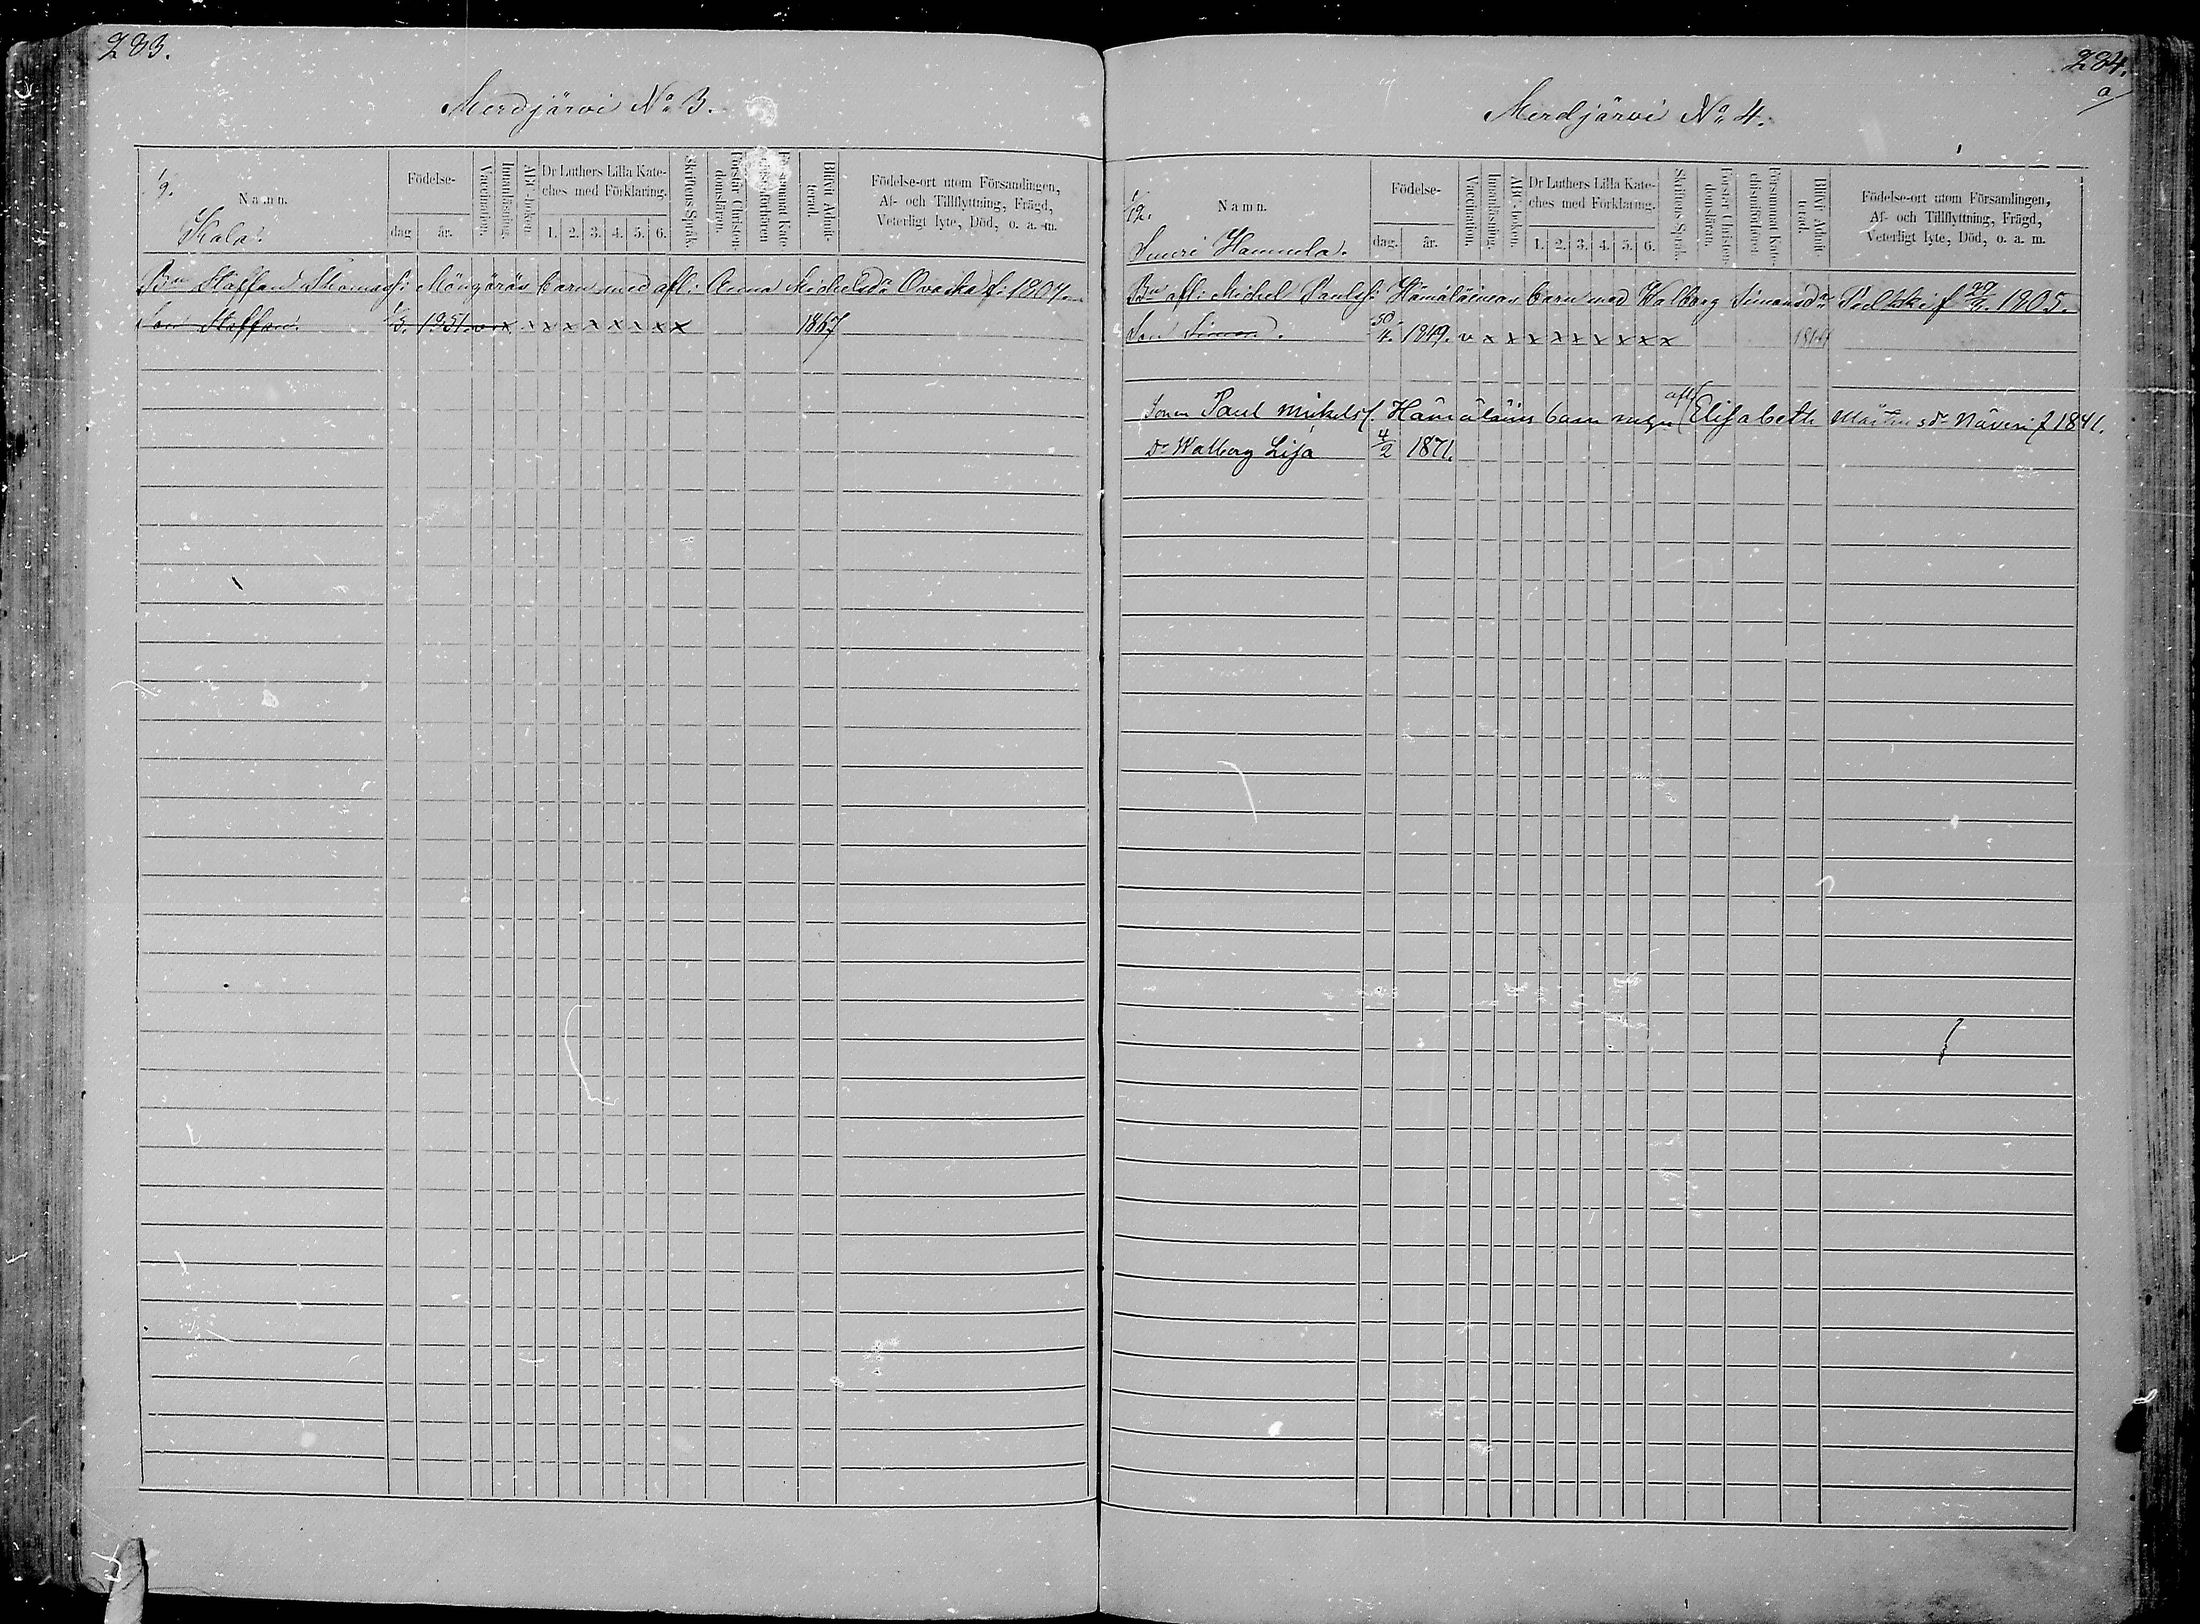 283.
Merdjärvi No 3.
1/9.
Namn.
Skala.
Födelse-
dag
år.
Vaccination.
Innanläsning.
ABC-boken.
Dr Luthers Lilla Kate-
ches med Förklaring.
1. 2. 3. 4. 5. 6.
Skriftens Språk.
Förstår Christen-
domsläran.
Försummat Kate-
chismiförhören
Blifvit Admit-
terad.
Födelse-ort utom Församlingen,
Af- och Tillflyttning, Frägd,
Veterligt lyte, Död, o. a. m.
Bn Staffan Thomass: barn med afl: Anna Michelsdr f: 1804.
Son Staffan. 1851. v x x x x x x x x x 1867
284.
a
Merdjärvi No 4.
1/12.
Namn.
Hannula.
Födelse-
dag.
år.
Vaccination.
Innanläsning.
ABC-boken.
Dr Luthers Lilla Kate-
ches med Förklaring.
1. 2. 3. 4. 5. 6.
Skriftens Språk.
Förstår Christen-
domsläran.
Försummat Kate-
chismiförhören.
Blifvit Admit-
terad.
Födelse-ort utom Församlingen,
Af- och Tillflyttning, Frägd,
Veterligt lyte, Död, o. a. m.
Bn afl: Michel Paulss: Hämäläinens barn med Walborg Simonsdr f 1805.
Son Simon. 30/4. 1849. v x x x x x x x x x
Sonen Paul Mickelsf. Hämäläins barn afl: Elisabeth Mårtensdr f 1841.
Dr Walborg Lisa 4/2 1871.